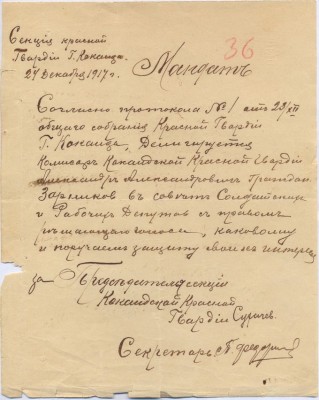 Секція красной
Гвардіи Г. Коканда.
24 Декабря 1917 г.
36
Мандатъ
Согласно протокола №1 отъ 23/XII
общаго собранія Красной Гвардіи
Г. Коканда, Делигируется
Комисаръ Кокандской Красной Гвардіи
Александръ Александровичъ
въ совѣтъ Солдатских
и Рабочих Депутов с правомъ
рѣшающаго голоса, каковому
и поручаем защиту своих интересов
за Предсѣдателя секціи
Кокандской Красной
Гвардіи
Секретарь